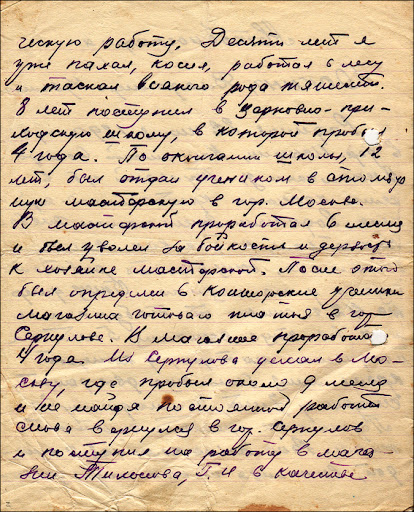 ческую работу. Десяти лет я
уже пахал, косил, работал в лесу
и таскал всякого рода тяжести.
8 лет поступил в церковно-при-
ходскую школу, в которой пробыл
4 года. По окончании школы, 12
лет, был отдан учеником в столяр
ную мастерскую в гор. Москве.
В мастерской проработал 6 месяц
и был уволен за бойкость и дерзость
к хозяйке мастерской. После этого
был определен в конторские ученики
магазина готового платья в гор
Серпухове. В магазине проработал
4 года. Из Серпухова уехал в Мо-
скву, где пробыл около 9 месяц
и не найдя постоянной работы
снова вернулся в гор. Серпухов
и поступил на работу в мага-
зин Т. И в качестве